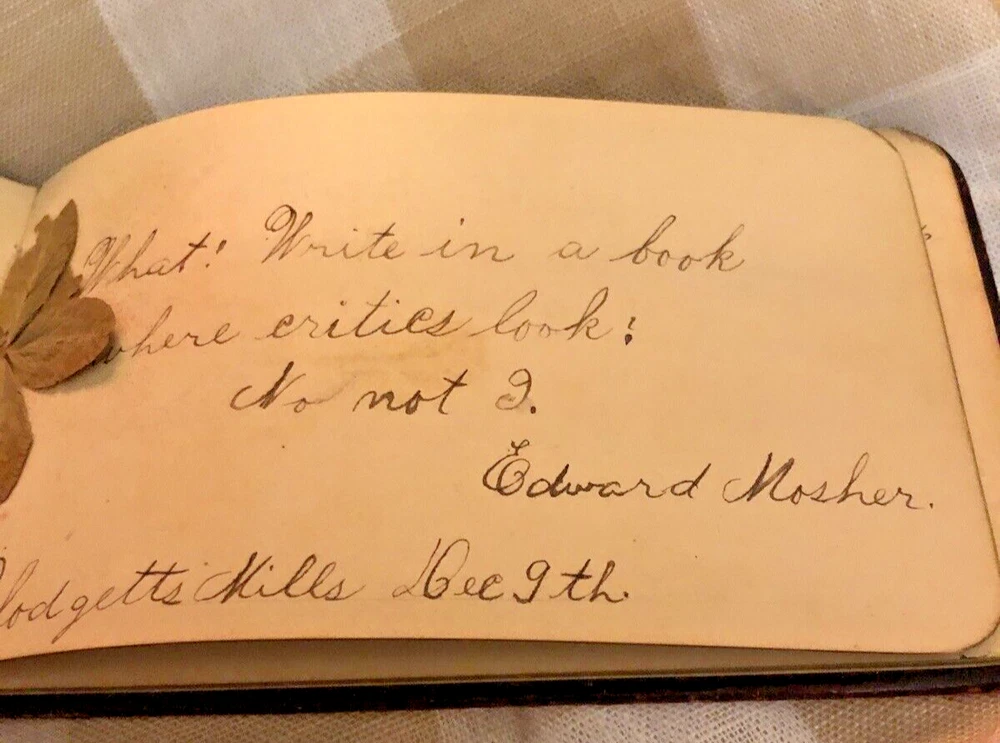 What! Write in a book
where critics look!
No not I.
Edward Mosher.
Blodgetts Mills Dec 9th.